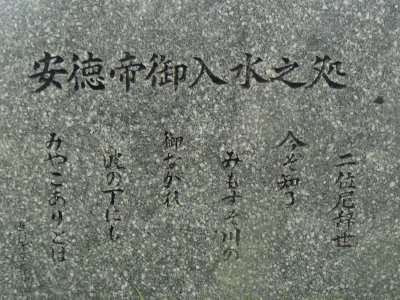 安徳帝御入水之処
二位尼辞世
今ぞ知る
みもすそ川の
御ながれ
波の下にも
みやこありとは